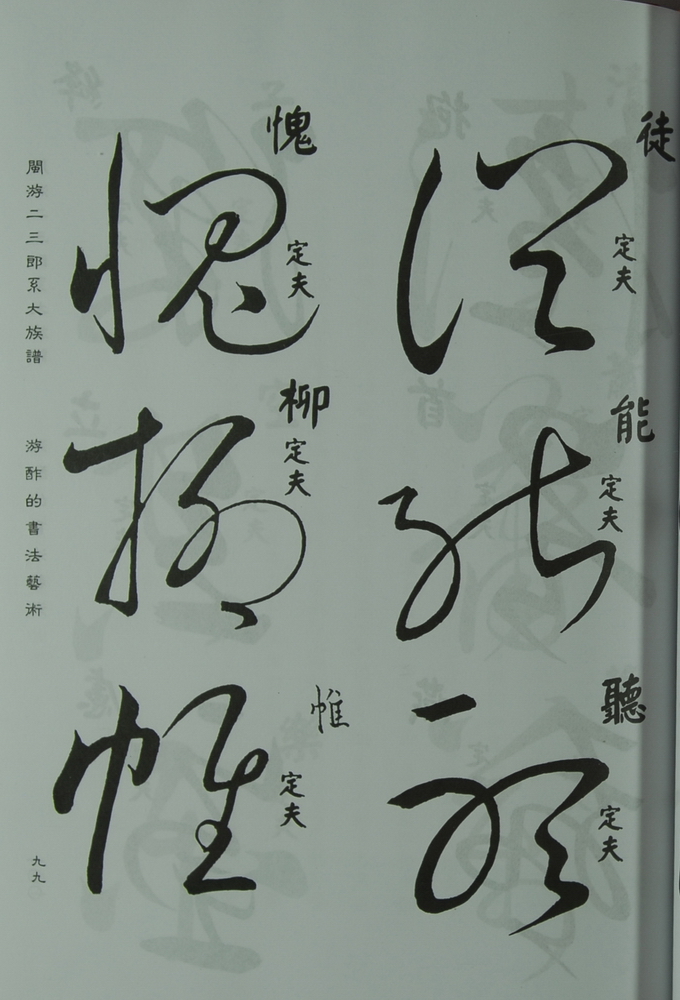 徒
定夫
能
定夫
聽
定夫
愧
定夫
柳
定夫
帷
定夫
閩游二三郎系大族譜
游酢的書法藝術
九九